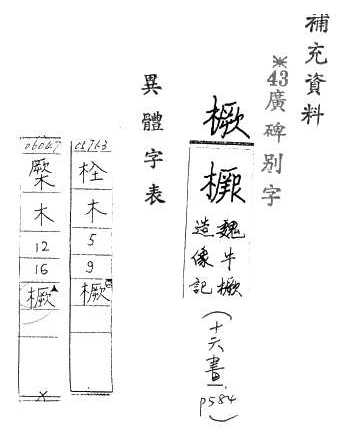 補充資料
※43廣碑別字
橛
魏牛橛
造像記
(十六畫 p584)
異體字表
c1763
木
5
9
橛
06047
橜
木
12
16
橛